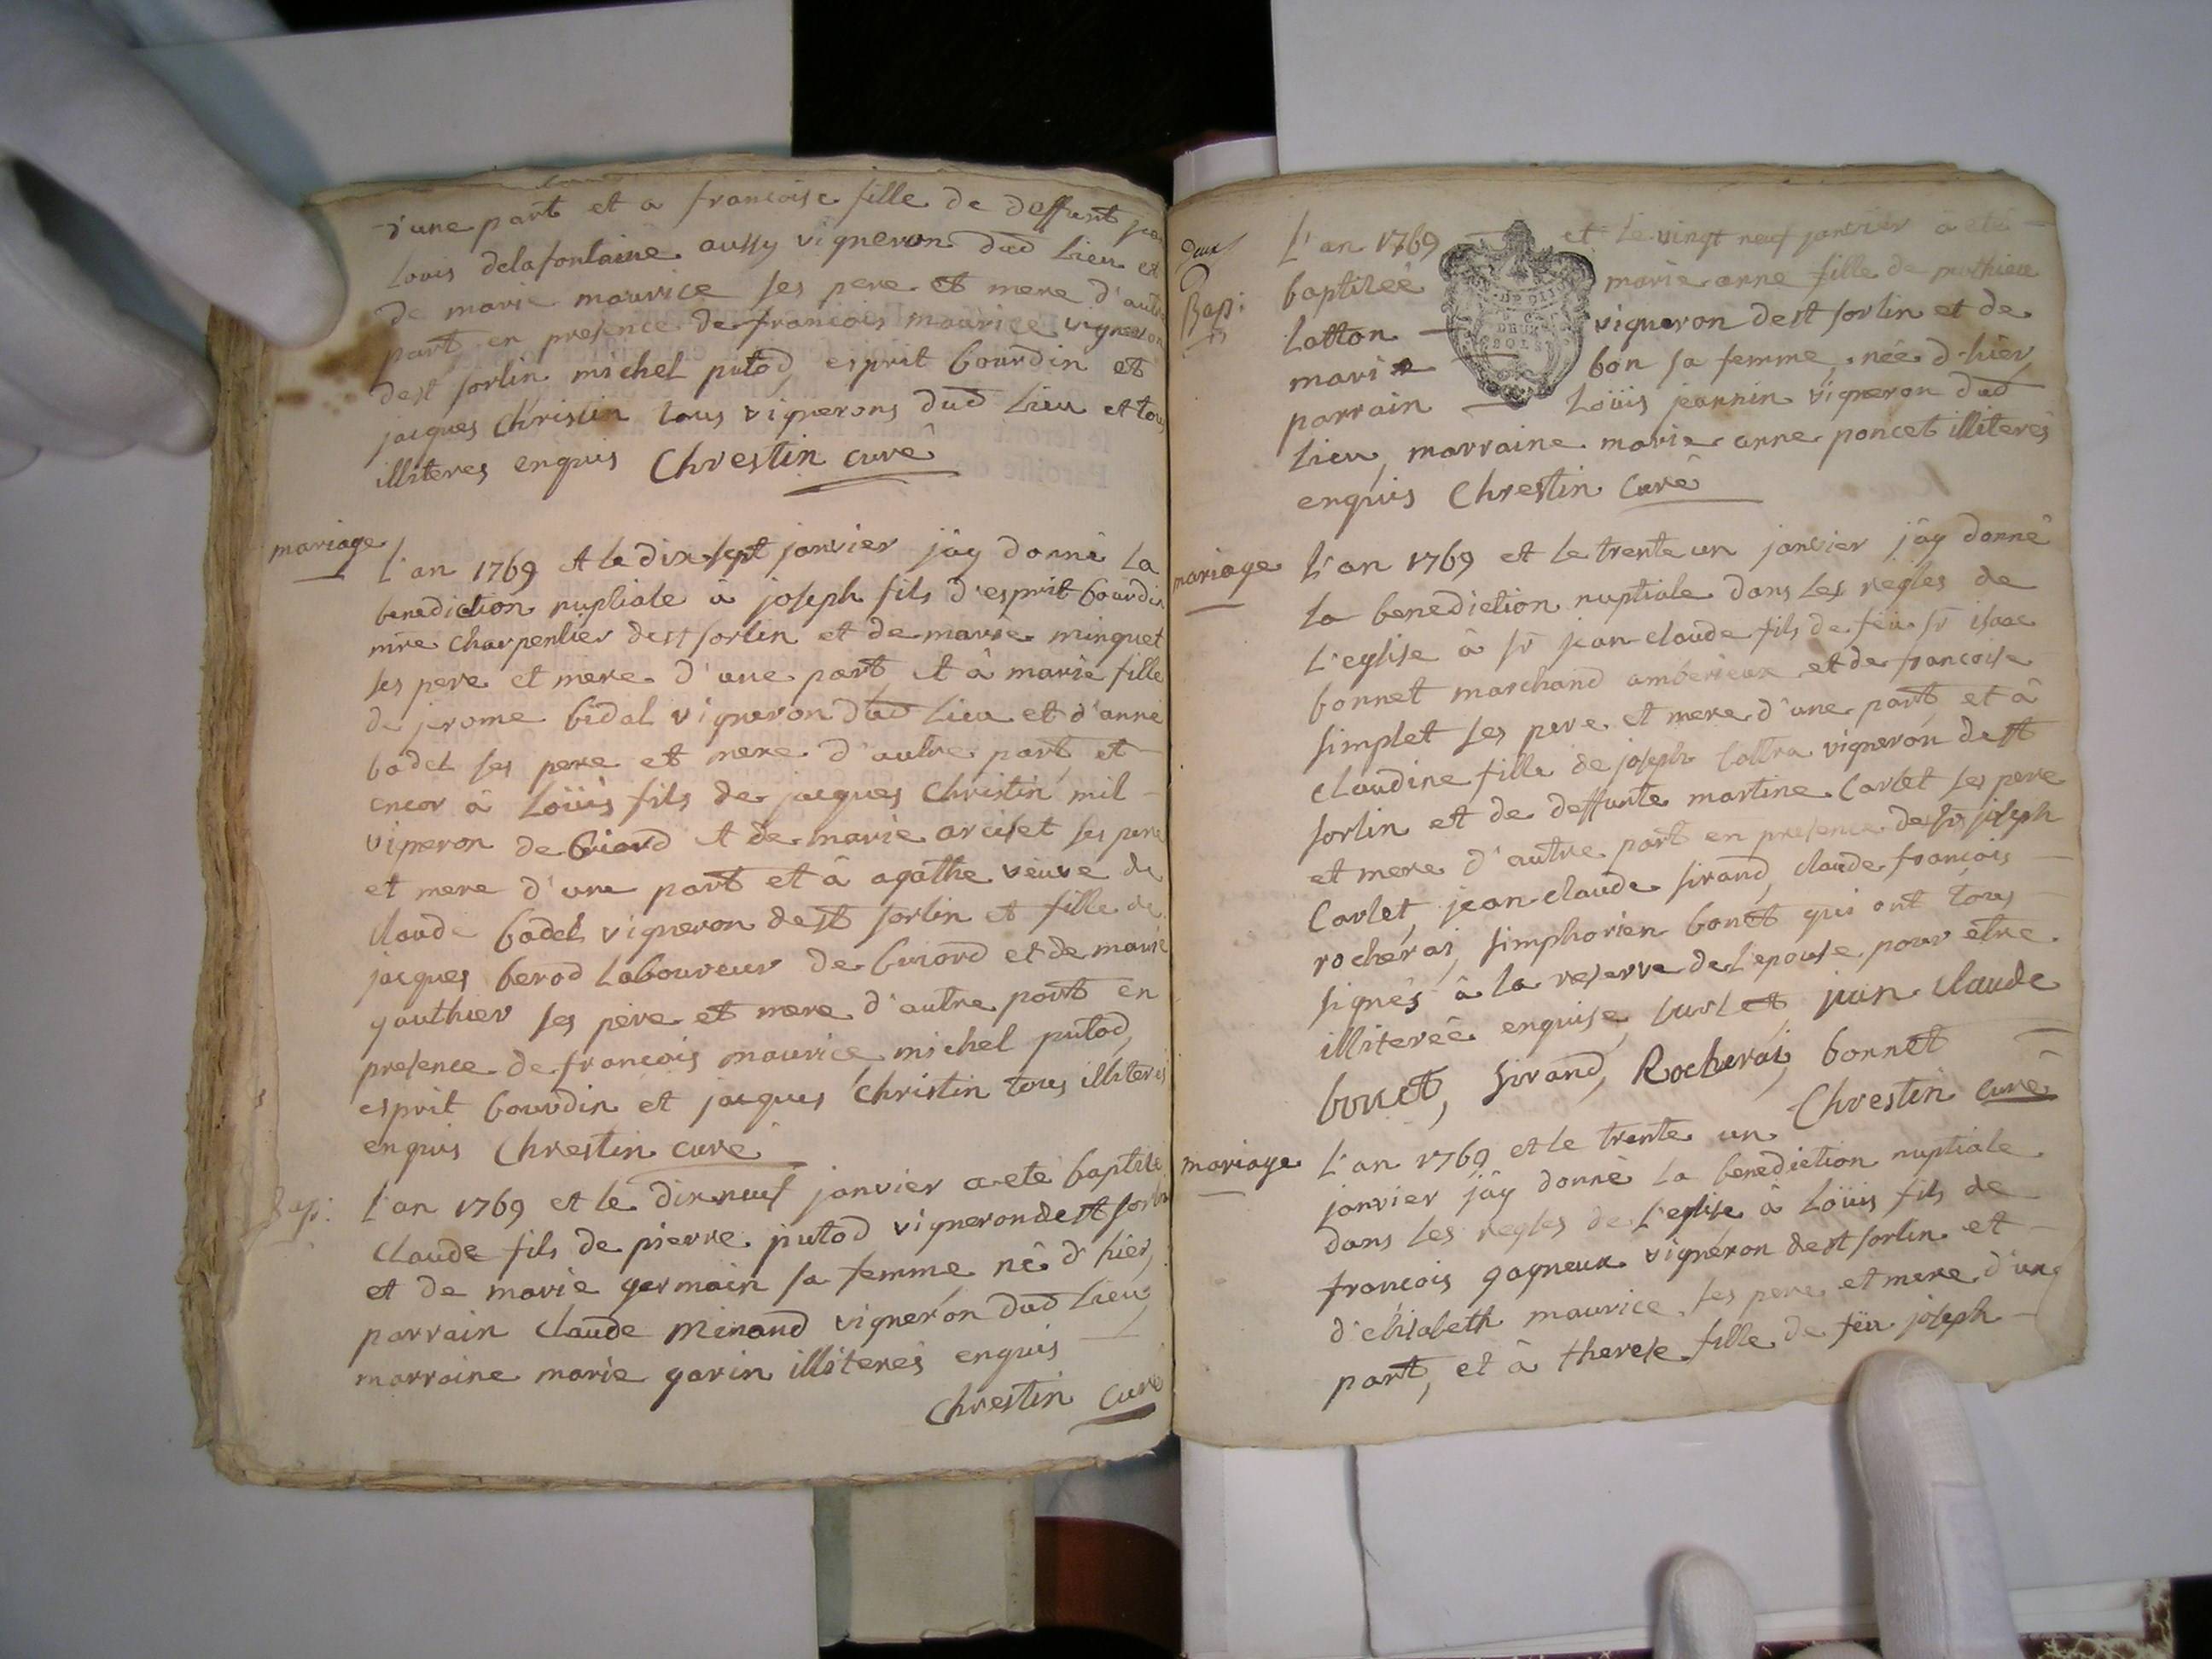 d'une part et a francoise fille de deffunt jean
Louis delafontaine aussy vigneron dud Lieu et
de marie maurice ses pere et mere d'autre
part en presence de francois maurice vigneron
de st sorlin michel putod, esprit bourdin et
jacques christin tous vignerons dud Lieu et tous
illiteres enquis Chrestin curé
mariage
L'an 1769 et le dix sept janvier jáy donné La
benediction nuptiale à joseph fils d'esprit bourdin
mre charpentier de st sorlin et de marie minguet
ses pere et mere d'une part, et à marie fille
de jerome bidal vigneron dud Lieu et d'anne
badel ses pere et mere d'autre part, et
encor à Loüis fils de jacques Christin mil
vigneron de briord et de marie arciset ses pere
et mere d'une part et à agathe veuve de
claude badel vigneron de st sorlin et fille de
jacques berod Laboureur de briord et de marie
gauthier ses pere et mere d'autre part en
presence de francois maurice, michel putod,
esprit bourdin et jacques Christin tous illiteres
enquis Chrestin curé
Bap:
L'an 1769 et le dix neuf janvier a eté baptisé
Claude fils de pierre putod vigneron de st sorlin
et de marie germain sa femme né d'hier,
parrain claude menand vigneron dud Lieu,
marraine marie garin illiteres enquis
Chrestin Curé
deux
Bap:
L'an 1769 et le vingt neuf janvier a eté
baptisée marie anne fille de mathieu
Lotton vigneron de st sorlin et de
marie bon sa femme, née d'hier,
parrain Loüis jeannin vigneron dud
Lieu, marraine marie anne poncet illiterés
enquis Chrestin Curé
mariage
L'an 1769 et le trente un janvier jáy donné
la benediction nuptiale dans Les regles de
L'eglise à sr jean claude fils de feu sr isaac
bonnet marchand amberieux et de francoise
simplet ses pere et mere d'une part, et à
claudine fille de joseph Cottra vigneron de st
sorlin et de deffunte martine Carlet ses pere
et mere d'autre part en presence de sr joseph
Carlet, jean claude sirand, claude francois
rocherai, simphorien bonet qui ont tous
signés à la reserve de L'epouse pour etre
illiterée enquise, Carlet jean claude
bonet, Sirand, Rocherai, bonnet
Chrestin curé
mariage
L'an 1769 et le trente un
janvier jáy donné la benediction nuptiale
dans Les regles de L'eglise à Loüis fils de
francois gagneux vigneron de st sorlin et
d'elisabeth maurice ses pere et mere d'une
part, et à therese fille de feu joseph